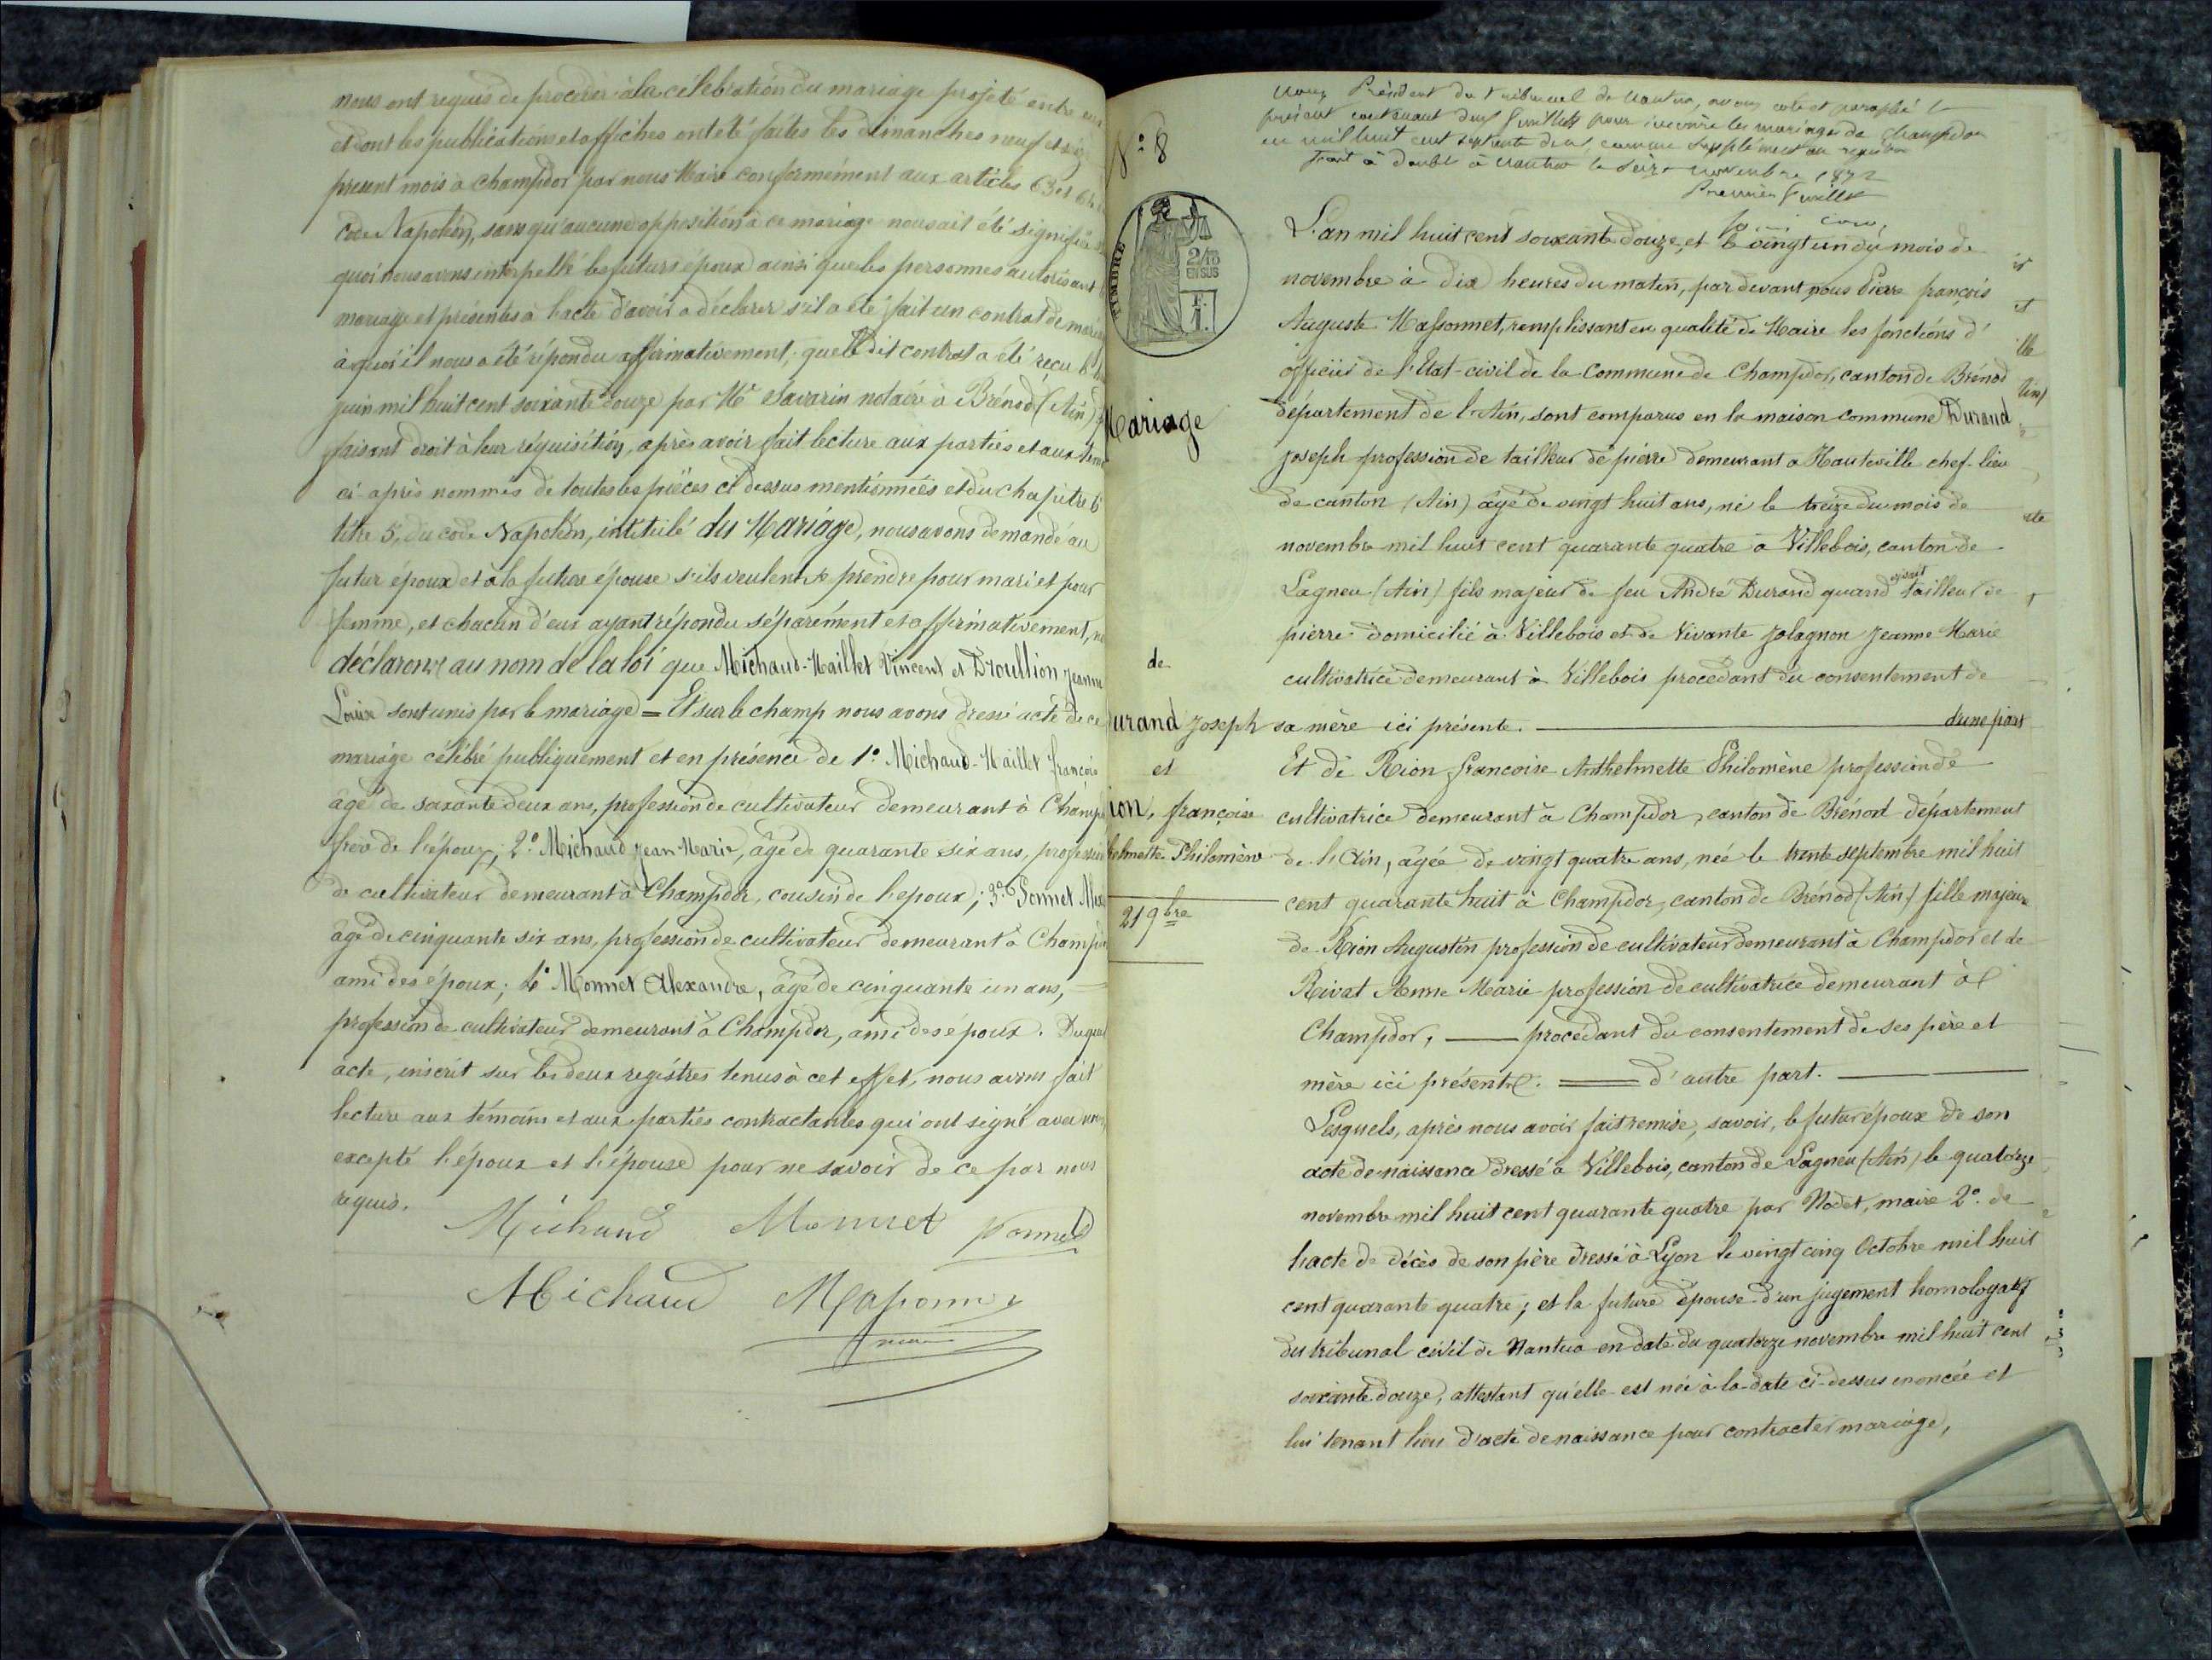 nous ont requis de procéder à la célébration du mariage projeté entre eux
et dont les publications et affiches ont été faites les dimanches neuf et
présent mois à Champdor par nous Maire conformément aux articles 63 et 64
code Napoléon, sans qu'aucune opposition à ce mariage nous ait été signifiée
quoi nous avons interpellé les futurs époux ainsi que les personnes autorisant
mariage et présentes à l'acte d'avoir à déclarer s'il a été fait un contrat de
à quoi il nous a été répondu affirmativement, que le dit contrat a été reçu le
juin mil huit cent soixante douze par Me Savarin notaire à Brénod (Ain)
faisant droit à leur réquisition, après avoir fait lecture aux parties et aux
ci-après nommés de toutes les pièces ci dessus mentionnées et du chapitre 6
titre 5, du code Napoléon, intitulé du Mariage, nous avons demandé au
futur époux et à la future épouse s'ils veulent se prendre pour mari et pour
femme, et chacun d'eux ayant répondu séparément et affirmativement,
déclarons au nom de la loi que Michaud-Maillet Vincent et Droullion Jeanne
Louise sont unis par le mariage = Et sur le champ nous avons dressé acte de ce
mariage célébré publiquement et en présence de 1° Michaud-Maillet françois
âgé de soixante deux ans, profession de cultivateur demeurant à
frère de l'époux; 2° Michaud Jean-Marie, âgé de quarante six ans,
de cultivateur demeurant à Champdor, cousin de l'époux; 3°
âgé de cinquante six ans, profession de cultivateur demeurant à
ami des époux; 4° Monnet Alexandre, âgé de cinquante un ans,
profession de cultivateur demeurant à Champdor, ami des époux. Duquel
acte, inscrit sur les deux registres tenus à cet effet, nous avons fait
lecture aux témoins et aux parties contractantes qui ont signé avec nous,
excepté l'époux et l'épouse pour ne savoir de ce par nous
requis.
Michaud Monnet Ponnet
Michaud Massonnet
maire
Nous Président du tribunal de Nantua, avons coté et paraphé le
présent contenant deux feuillets pour inscrire les mariages de Champdor
en mil huit cent septante deux comme supplément au registre
fait à double à Nantua le seize novembre 1872
Premier feuillet
N° 8
TIMBRE
2/10
EN SUS
L'an mil huit cent soixante douze, et le vingt un du mois de
novembre à dix heures du matin, par devant nous Pierre françois
Auguste Massonnet, remplissant en qualité de Maire les fonctions d'
officier de l'Etat-civil de la Commune de Champdor, canton de Brénod
Mariage
département de l'Ain, sont comparus en la maison commune Durand
Joseph profession de tailleur de pierre demeurant à Hauteville chef-lieu
de canton (Ain) âgé de vingt huit ans, né le treize du mois de
novembre mil huit cent quarante quatre à Villebois, canton de
Lagneu (Ain) fils majeur de feu André Durand quand vivait tailleur de
pierre domicilié à Villebois et de Vivante Jolagnon Jeanne Marie
de
cultivatrice demeurant à Villebois procédant du consentement de
urand Joseph
sa mère ici présente. d'une part
et
Et de Rion françoise Anthelmette Philomène profession de
ion, françoise
cultivatrice demeurant à Champdor, canton de Brénod département
helmette Philomène
de l'Ain, âgée de vingt quatre ans, née le trente septembre mil huit
cent quarante huit à Champdor, canton de Brénod (Ain) fille majeure
21 9bre
de Rion Augustin profession de cultivateur demeurant à Champdor et de
Rivat Anne Marie profession de cultivatrice demeurant à
Champdor, procédant du consentement de ses père et
mère ici présents. = d'autre part.
Lesquels, après nous avoir fait remise, savoir, le futur époux de son
acte de naissance dressé à Villebois, canton de Lagneu (Ain) le quatorze
novembre mil huit cent quarante quatre par Nodet, maire 2° de
l'acte de décès de son père dressé à Lyon le vingt cinq Octobre mil huit
cent quarante quatre; et la future épouse d'un jugement homologatif
du tribunal civil de Nantua en date du quatorze novembre mil huit cent
soixante douze, attestant qu'elle est née à la date ci-dessus énoncée et
lui tenant lieu d'acte de naissance pour contracter mariage,